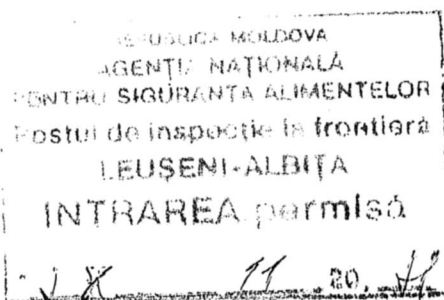 REPUBLICA MOLDOVA
AGENȚIA NAȚIONALĂ
PENTRU SIGURANȚA ALIMENTELOR
Postul de inspecție la frontieră
LEUȘENI-ALBIȚA
INTRAREA permisă
11 20